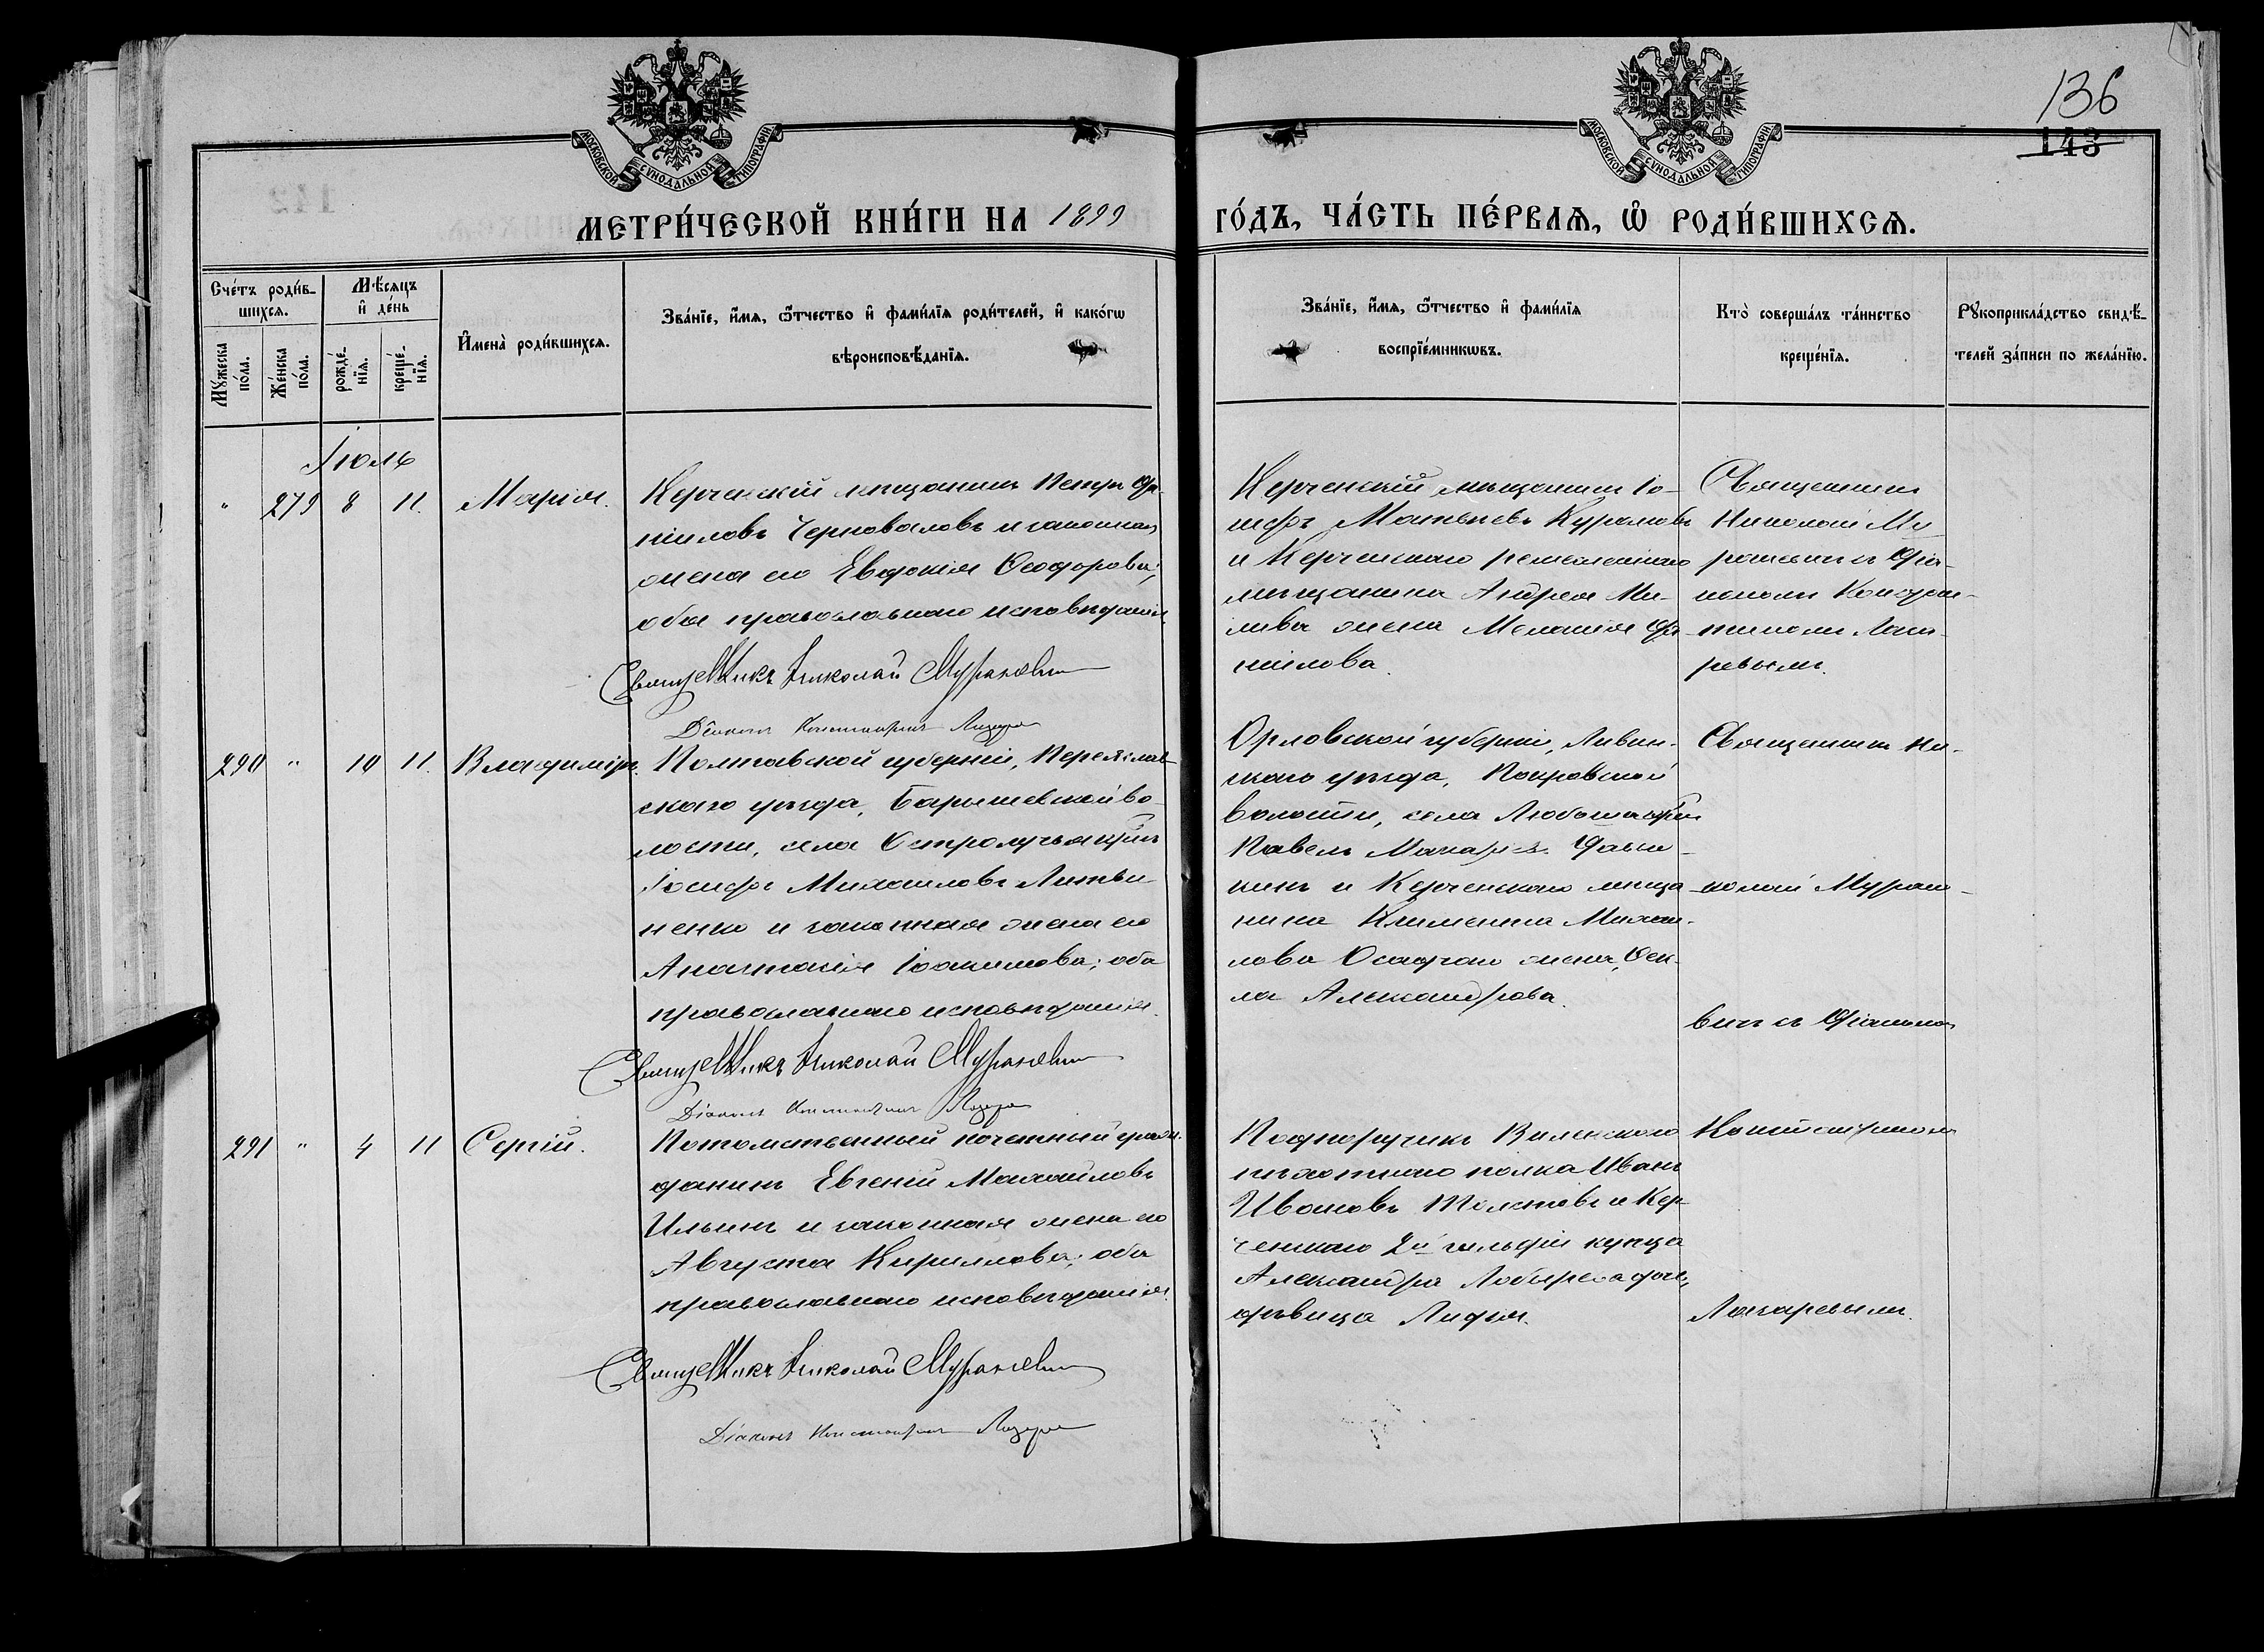 136
143
МОСКОВСКОЙ СѴНОДАЛЬНОЙ ТИПОГРАФІИ
МОСКОВСКОЙ СѴНОДАЛЬНОЙ ТИПОГРАФІИ
МЕТРИ́ЧЕСКОЙ КНИ́ГИ НА 1899
ГО́ДЪ, ЧА́СТЬ ПЕ́РВАѦ, Ѽ РОДИ́ВШИХСѦ.
Сче́тъ роди́в-
шихсѧ.
Мꙋ́жеска по́ла.
Же́нска по́ла.
Мѣ́сѧцъ
и҆ де́нь
рожде́-нїѧ.
креще́-нїѧ.
И҆мена̀ роди́вшихсѧ.
Зва́нїе, и҆́мѧ, ѻ҆́тчество и҆ фами́лїѧ роди́телей, и҆ како́гѡ
вѣроисповѣ́данїѧ.
Зва́нїе, и҆́мѧ, ѻ҆́тчество и҆ фами́лїѧ
воспрїе́мникѡвъ.
Кто̀ соверша́лъ та́инство
креще́нїѧ.
Рꙋкоприкла́дство свидѣ́-
телей за́писи по жела́нїю.
Іюль
" 279 8 11. Марія.
Керченскій мѣщанинъ Петръ Да-
ніиловъ Черноваловъ и законная
жена его Евдокія Ѳеодорова;
оба православнаго исповѣданія.
Священникъ Николай Мурашевичъ
Діаконъ Константинъ Лазаревъ
Керченскій мѣщанинъ Іо-
сифъ Матвѣевъ
и Керченскаго ремесленнаго
мѣщанина Андрея
жена Меланія Да-
ніилова.
Священникъ
Николай Му-
рашевичъ съ діа-
кономъ Констан-
тиномъ Лаза-
ревымъ.
290 " 10 11. Владиміръ.
Полтавской губерніи, Переяслав-
скаго уѣзда, Барышевской во-
лости, села Остролучья кр-нъ
Іосифъ Михаиловъ Литви-
ненко и законная жена его
Анастасія Іоакимова; оба
православнаго исповѣданія.
Священникъ Николай Мурашевичъ
Діаконъ Константинъ Лазаревъ
Орловской губерніи, Ливен-
скаго уѣзда, Покровской
волости, села
Павелъ Макаріевъ
и Керченскаго мѣща-
нина Климента Михаи-
лова жена, Ѳек-
ла Александрова.
Священникъ Ни-
колай Мураше-
вичъ съ діакономъ
291 " 4 11 Сергій.
Потомственный почетный граж-
данинъ Евгеній Михаиловъ
Ильинъ и законная жена его
Августа Кириллова; оба
православнаго исповѣданія.
Священникъ Николай Мурашевичъ
Діаконъ Константинъ Лазаревъ
Подпоручикъ Виленскаго
пѣхотнаго полка Иванъ
Ивановъ Толстовъ и Кер-
ченскаго 2й гильдіи купца
Александра дочь,
дѣвица Лидія.
Константиномъ
Лазаревымъ.